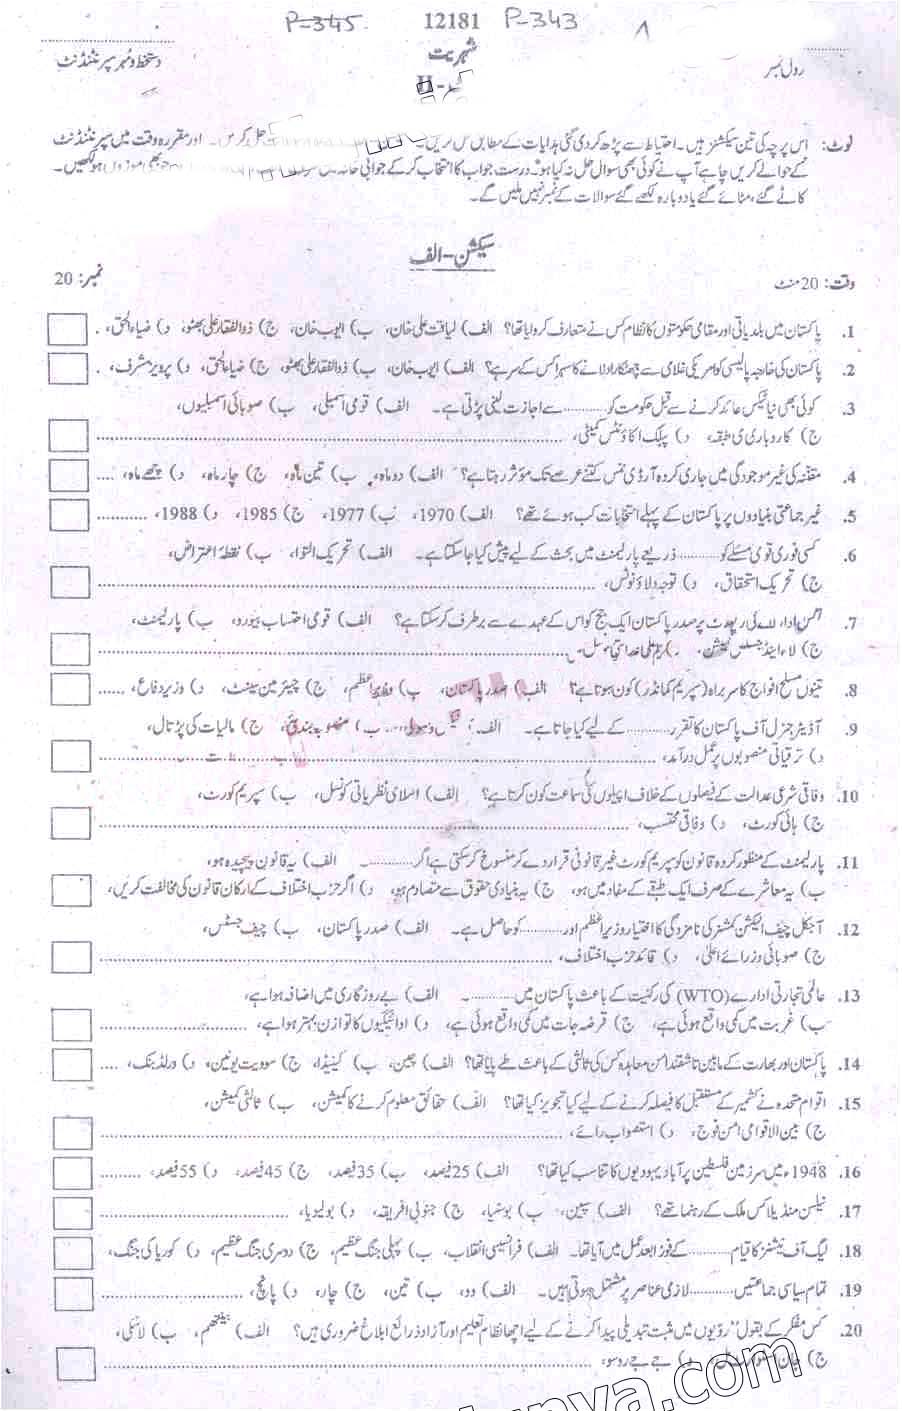 P-345 12181 P-343 1
شہریت
دستخط و مہر سپرنٹنڈنٹ
رول نمبر
II
نوٹ: اس پرچہ کی تین سیکشنز ہیں۔ احتیاط سے پڑھ کر دی گئی ہدایات کے مطابق حل کریں۔ اور مقررہ وقت میں سپرنٹنڈنٹ
کے حوالے کریں چاہے آپ نے کوئی بھی سوال حل نہ کیا ہو۔ درست جواب کا انتخاب کر کے جوابی موزوں ہو لکھیں۔
کاٹے گئے، مٹائے گئے یا دوبارہ لکھے گئے سوالات کے نمبر نہیں ملیں گے۔
سیکشن - الف
وقت: 20 منٹ نمبر: 20
1. پاکستان میں بلدیاتی اور مقامی حکومتوں کا نظام کس نے متعارف کروایا تھا؟ الف) لیاقت علی خان، ب) ایوب خان، ج) ذوالفقار علی بھٹو، د) ضیاءالحق،
2. پاکستان کی خارجہ پالیسی کو امریکی غلامی سے چھٹکارا دلانے کا سہرا کس کے سر ہے؟ الف) ایوب خان، ب) ذوالفقار علی بھٹو، ج) ضیاءالحق، د) پرویز مشرف،
3. کوئی بھی نیا ٹیکس عائد کرنے سے قبل حکومت کو ............ سے اجازت لینی پڑتی ہے۔ الف) قومی اسمبلی، ب) صوبائی اسمبلیوں،
ج) کاروباری طبقہ، د) پبلک اکاؤنٹس کمیٹی،
4. مقننہ کی غیر موجودگی میں جاری کردہ آرڈی ننس کتنے عرصے تک مؤثر رہتا ہے؟ الف) دو ماہ، ب) تین ماہ، ج) چار ماہ، د) چھے ماہ،
5. غیر جماعتی بنیادوں پر پاکستان کے پہلے انتخابات کب ہوئے تھے؟ الف) 1970، ب) 1977، ج) 1985، د) 1988،
6. کسی فوری قومی مسئلے کو ............ ذریعے پارلیمنٹ میں بحث کے لیے پیش کیا جا سکتا ہے۔ الف) تحریک التوا، ب) نقطۂ اعتراض،
ج) تحریک استحقاق، د) توجہ دلاؤ نوٹس،
7. کس ادارے کی رپورٹ پر صدر پاکستان ایک جج کو اس کے عہدے سے برطرف کر سکتا ہے؟ الف) قومی احتساب بیورو، ب) پارلیمنٹ،
ج) لاء اینڈ جسٹس کمیشن،
8. تینوں مسلح افواج کا سربراہ (سپریم کمانڈر) کون ہوتا ہے؟ الف) صدر پاکستان، ب) وزیر اعظم، ج) چیئرمین سینٹ، د) وزیر دفاع،
9. آڈیٹر جنرل آف پاکستان کا تقرر ............ کے لیے کیا جاتا ہے۔ الف) ٹیکس وصولی، ب) منصوبہ بندی، ج) مالیات کی پڑتال،
د) ترقیاتی منصوبوں پر عمل درآمد،
10. وفاقی شرعی عدالت کے فیصلوں کے خلاف اپیلوں کی سماعت کون کرتا ہے؟ الف) اسلامی نظریاتی کونسل، ب) سپریم کورٹ،
ج) ہائی کورٹ، د) وفاقی محتسب،
11. پارلیمنٹ کے منظور کردہ قانون کو سپریم کورٹ غیر قانونی قرار دے کر منسوخ کر سکتی ہے اگر ............ ۔ الف) یہ قانون پیچیدہ ہو،
ب) یہ معاشرے کے صرف ایک طبقے کے مفاد میں ہو، ج) یہ بنیادی حقوق سے متصادم ہو، د) اگر حزب اختلاف کے ارکان قانون کی مخالفت کریں،
12. آجکل چیف الیکشن کمشنر کی نامزدگی کا اختیار وزیر اعظم اور ............ کو حاصل ہے۔ الف) صدر پاکستان، ب) چیف جسٹس،
ج) صوبائی وزرائے اعلیٰ، د) قائد حزب اختلاف،
13. عالمی تجارتی ادارے (WTO) کی رکنیت کے باعث پاکستان میں ............ ۔ الف) بے روزگاری میں اضافہ ہوا ہے،
ب) غربت میں کمی واقع ہوئی ہے، ج) قرضہ جات میں کمی واقع ہوئی ہے، د) ادائیگیوں کا توازن بہتر ہوا ہے،
14. پاکستان اور بھارت کے مابین تاشقند امن معاہدہ کس کی ثالثی کے باعث طے پایا تھا؟ الف) چین، ب) کینیڈا، ج) سوویت یونین، د) ورلڈ بنک،
15. اقوام متحدہ نے کشمیر کے مستقبل کا فیصلہ کرنے کے لیے کیا تجویز کیا تھا؟ الف) حقائق معلوم کرنے کا کمیشن، ب) ثالثی کمیشن،
ج) بین الاقوامی امن فوج، د) استصواب رائے،
16. 1948ء میں سرزمین فلسطین پر آباد یہودیوں کا تناسب کیا تھا؟ الف) 25 فیصد، ب) 35 فیصد، ج) 45 فیصد، د) 55 فیصد،
17. نیلسن منڈیلا کس ملک کے رہنما تھے؟ الف) سپین، ب) بوسنیا، ج) جنوبی افریقہ، د) بولیویا،
18. لیگ آف نیشنز کا قیام ............ کے فوراً بعد عمل میں آیا تھا۔ الف) فرانسیسی انقلاب، ب) پہلی جنگ عظیم، ج) دوسری جنگ عظیم، د) کوریا کی جنگ،
19. تمام سیاسی جماعتیں ............ لازمی عناصر پر مشتمل ہوتی ہیں۔ الف) دو، ب) تین، ج) چار، د) پانچ،
20. کس مفکر کے بقول "رویوں میں مثبت تبدیلی پیدا کرنے کے لیے اچھا نظام تعلیم اور آزاد ذرائع ابلاغ ضروری ہیں؟ الف) بینتھم، ب) لاسکی،
ج) جان سٹوارٹ مل، د) جے جے روسو،